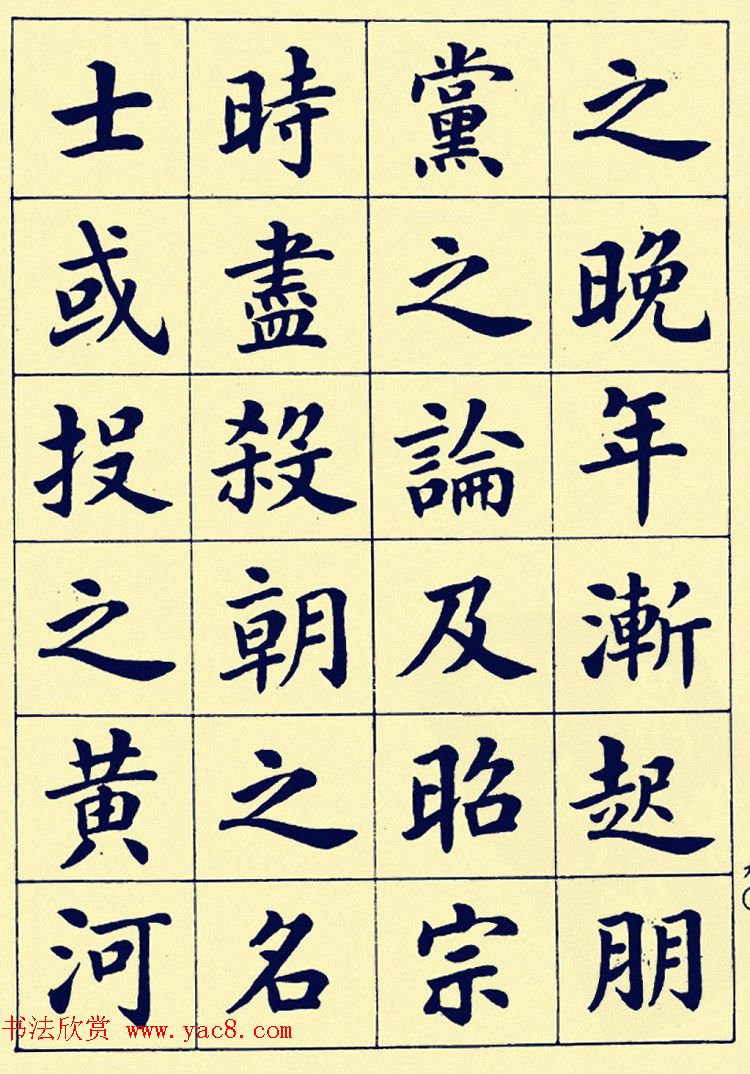 之晚年漸起朋
黨之論及昭宗
時盡殺朝之名
士或投之黄河
书法欣赏 www.yac8.com